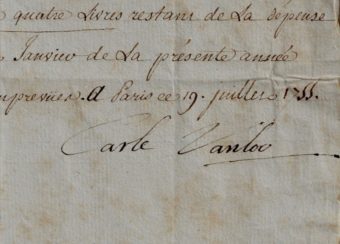 quatre Livres restant de La dépense
Janvier de La présente année
imprevües. A Paris ce 19. juillet 1755.
Carle Vanloo